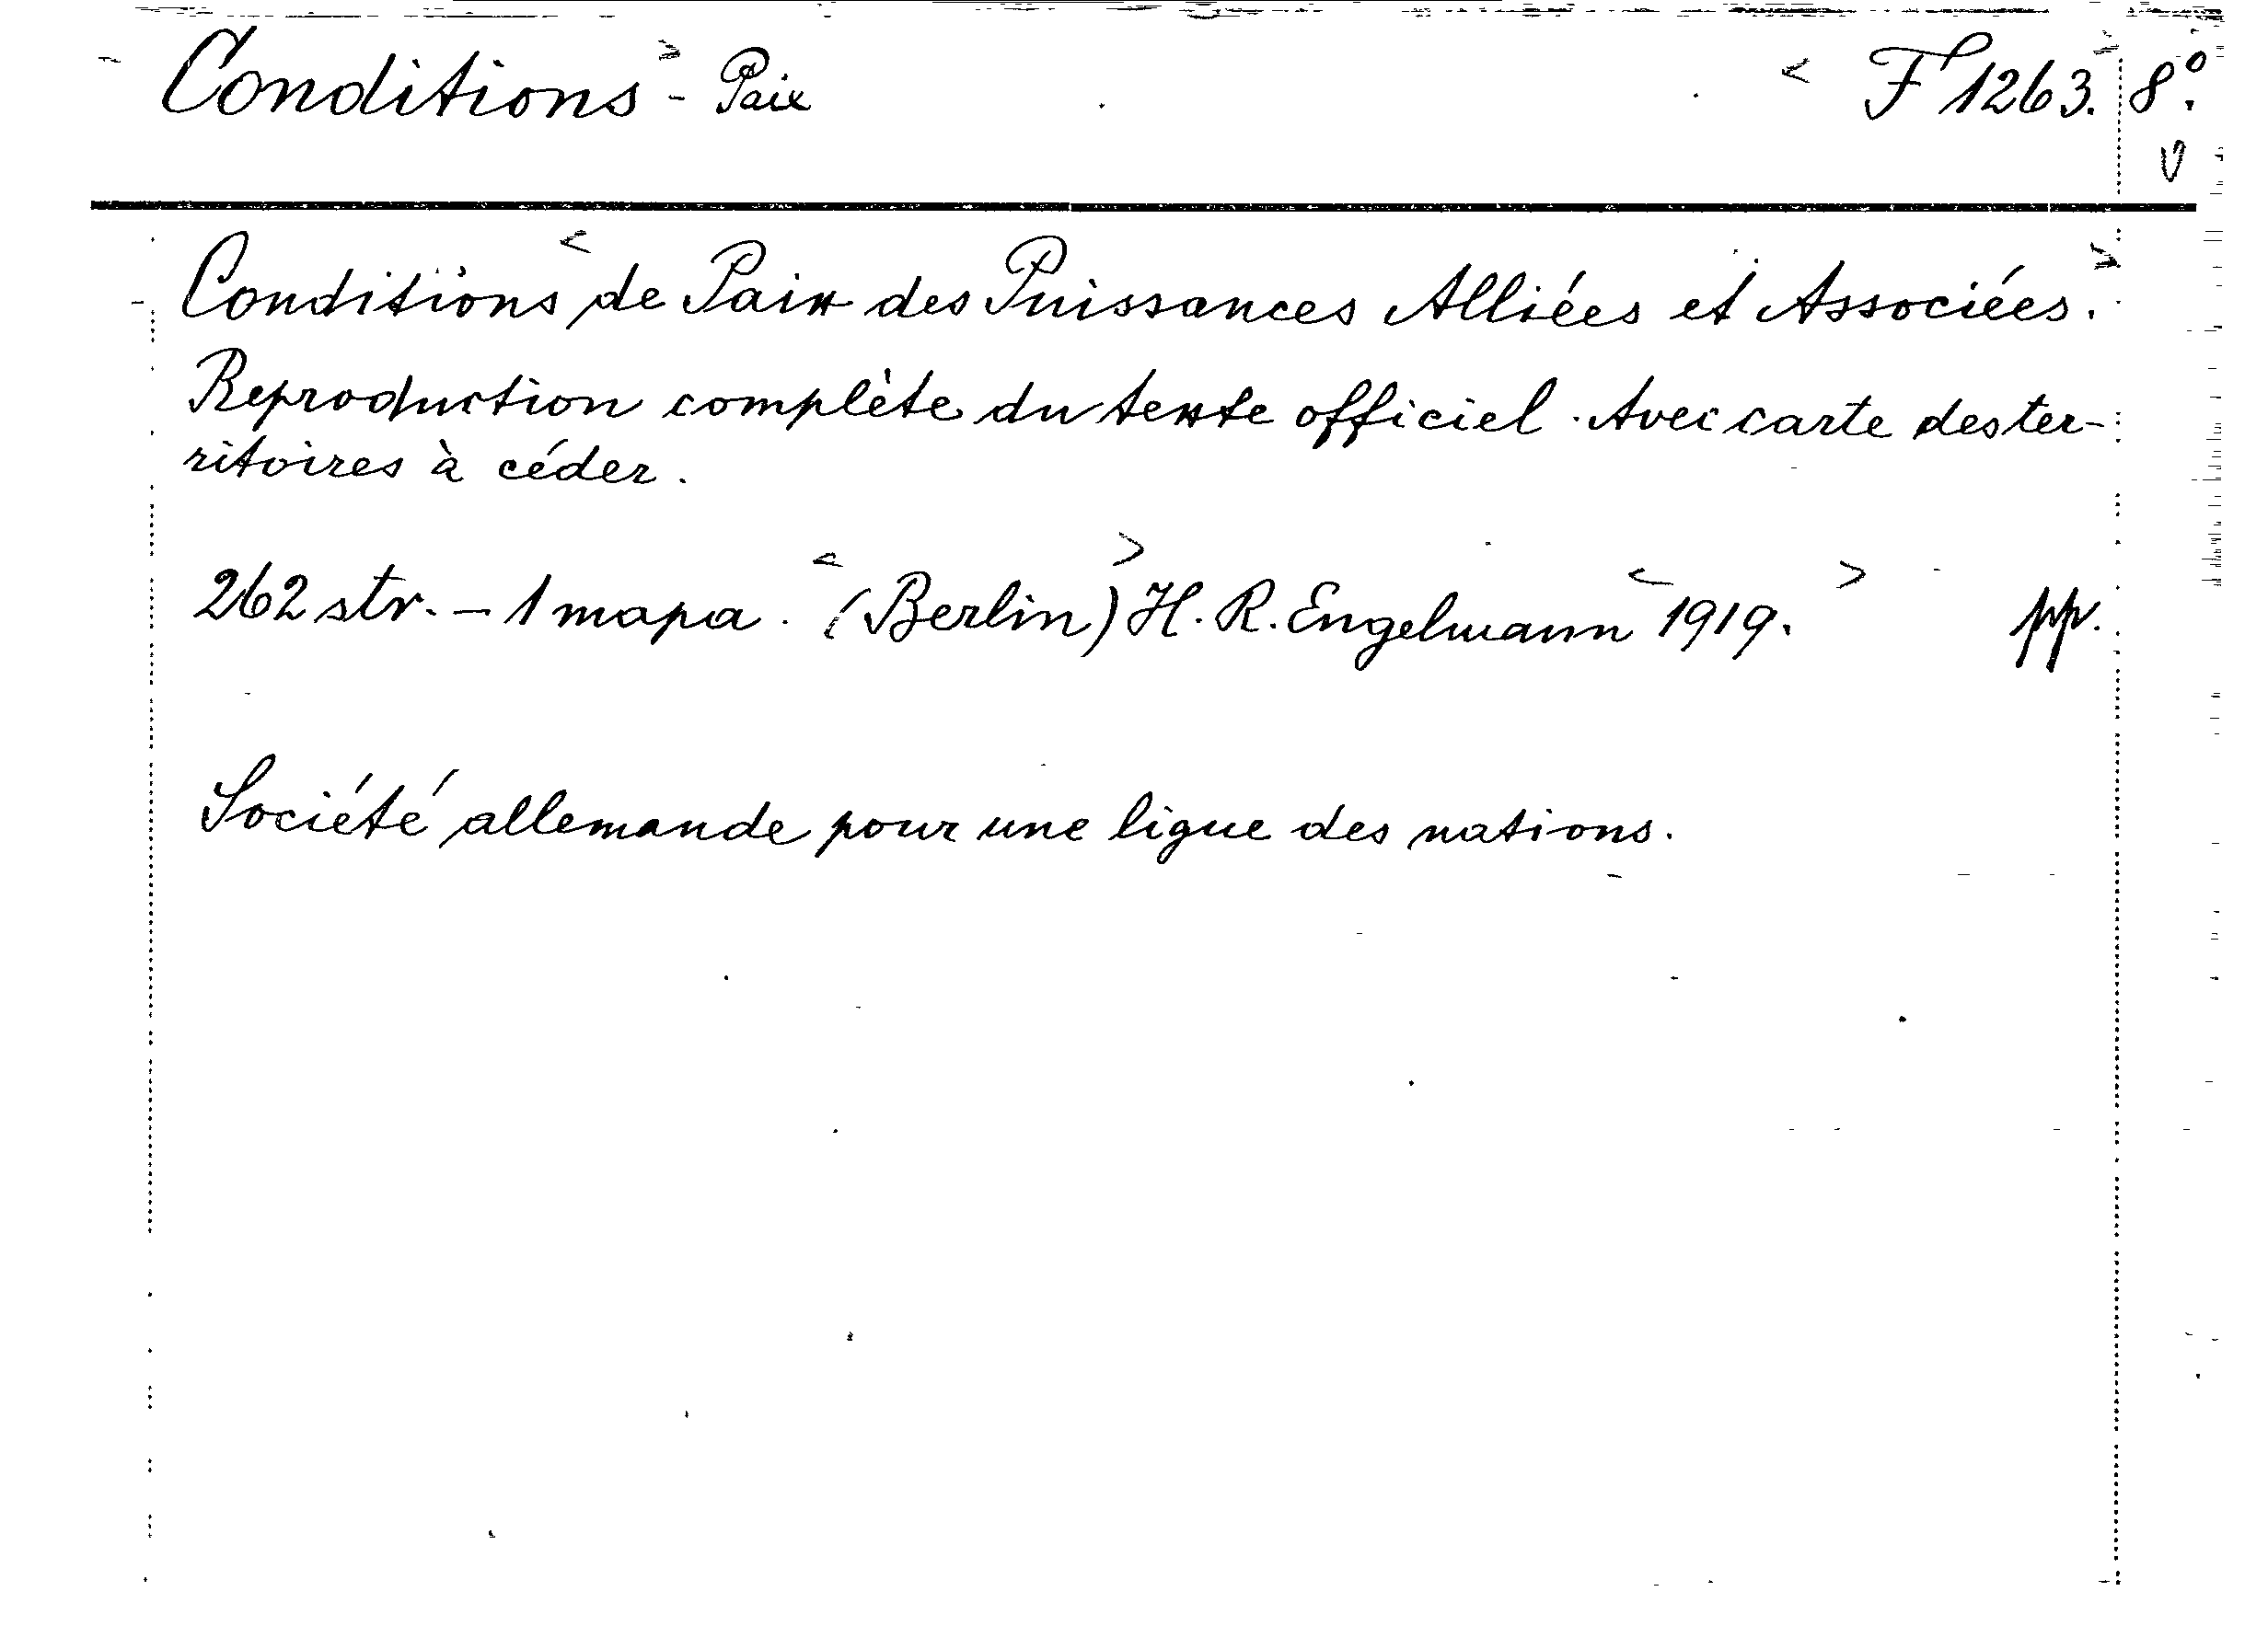 Conditions - Paix F 1263. 8°.
v
Conditions de Paix des Puissances Alliées et Associées.
Reproduction complète du texte officiel. Avec carte des ter-
ritoires à céder.
262 str. - 1 mapa. (Berlin) H. R. Engelmann 1919. pp.
Société allemande pour une ligue des nations.